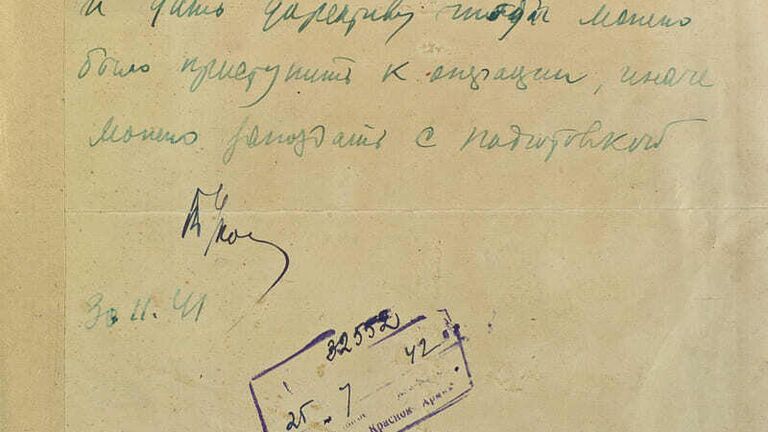 и дать директиву чтобы можно
было приступить к операции, иначе
можно запоздать с подготовкой
30.11.41
32552
25 7 42
Красной Армии